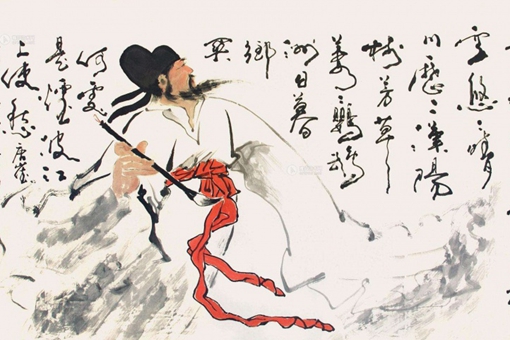 空悠々晴
川歷々漢陽
樹芳草
萋々鸚鵡
洲日暮
鄉
關
何處
是煙波江
上使愁唐崔